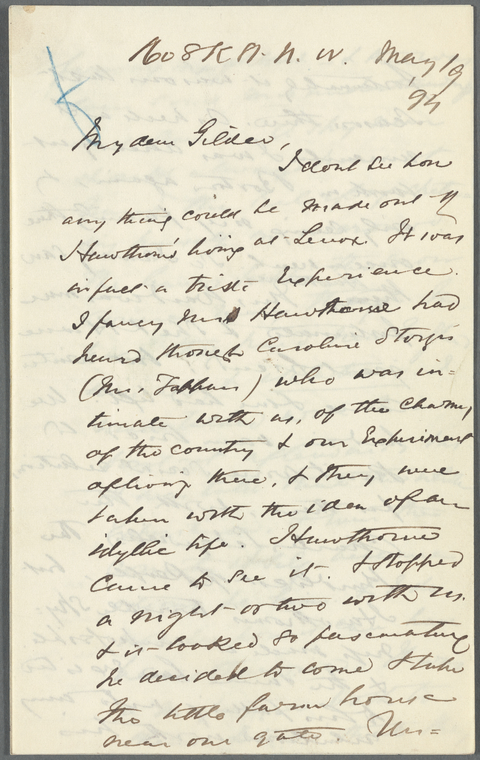 1608 K St. N. W. May 19
/94
My dear Gilder,
I dont see how
any thing could be made out of
Hawthorne's living at Lenox. It was
in fact a triste experience.
I fancy Mrs Hawthorne had
heard through Caroline Sturgis
(Mrs. Tappan) who was in-
timate with us, of the charms
of the country & our experiment
of living there, & they were
taken with the idea of an
idyllic life. Hawthorne
came to see it & stopped
a night or two with us.
& it looked so fascinating
he decided to come & take
the little farm house
near our gate. Un=